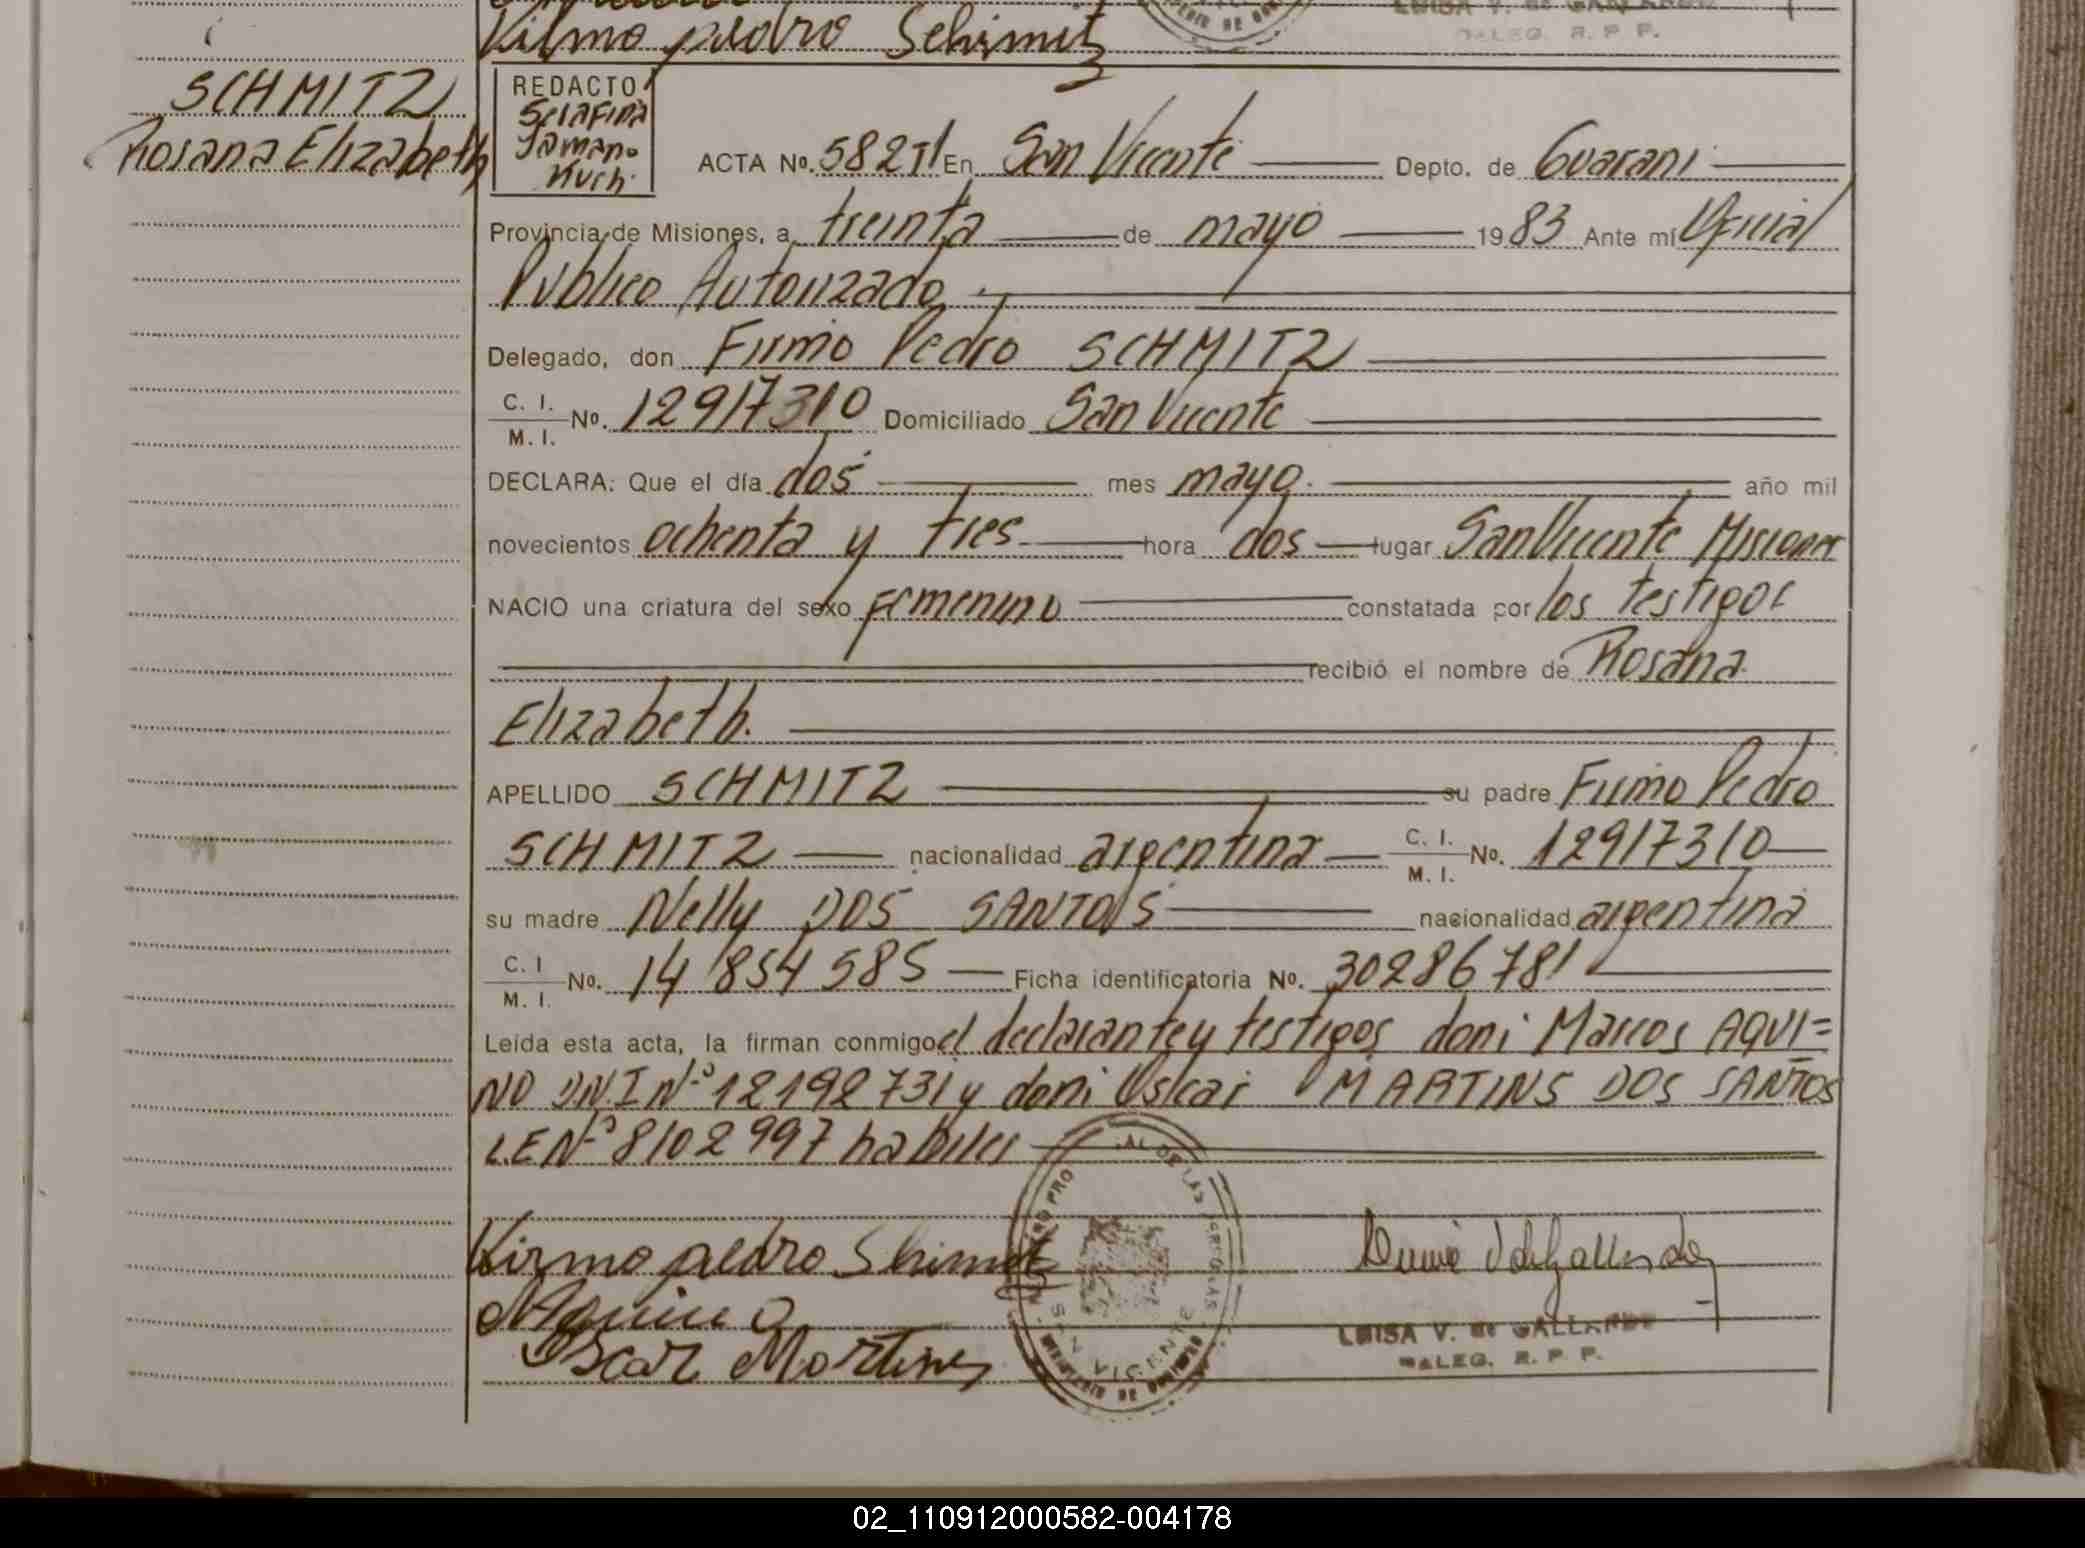 Firmo pedro Schimitz
LUISA V. de GALLARDO
DELEG. R. P. P.
SCHMITZ
Rosana Elizabeth
REDACTO
Serafina
Kuch.
ACTA Nº. 582 TI En San Vicente Depto. de Guarani
Provincia de Misiones, a treinta de mayo 1983 Ante mí Oficial
Publico Autorizado
Delegado, don Firmo Pedro SCHMITZ
C. I.
M. I. Nº. 12917310 Domiciliado San Vicente
DECLARA: Que el día dos mes mayo. año mil
novecientos ochenta y tres hora dos lugar San Vicente Misiones
NACIO una criatura del sexo femenino constatada por los testigos
recibió el nombre de Rosana
Elizabeth.
APELLIDO SCHMITZ su padre Firmo Pedro
SCHMITZ nacionalidad argentina C. I. M. I. Nº. 12917310
su madre Nelly DOS SANTOS nacionalidad argentina
C. I M. I. Nº. 14 854 585 Ficha identificatoria Nº. 30286781
Leída esta acta, la firman conmigo el declarante y testigos don: Marcos AQUI=
NO D.N.I Nº 12192731 y don: Oscar MARTINS DOS SANTOS
L.E Nº 8102997 habiles
Firmo pedro Shimitz
MAquino
Oscar Martins
SAN VICENTE
LUISA V. de GALLARDO
DALEG. R. P. P.
02_110912000582-004178